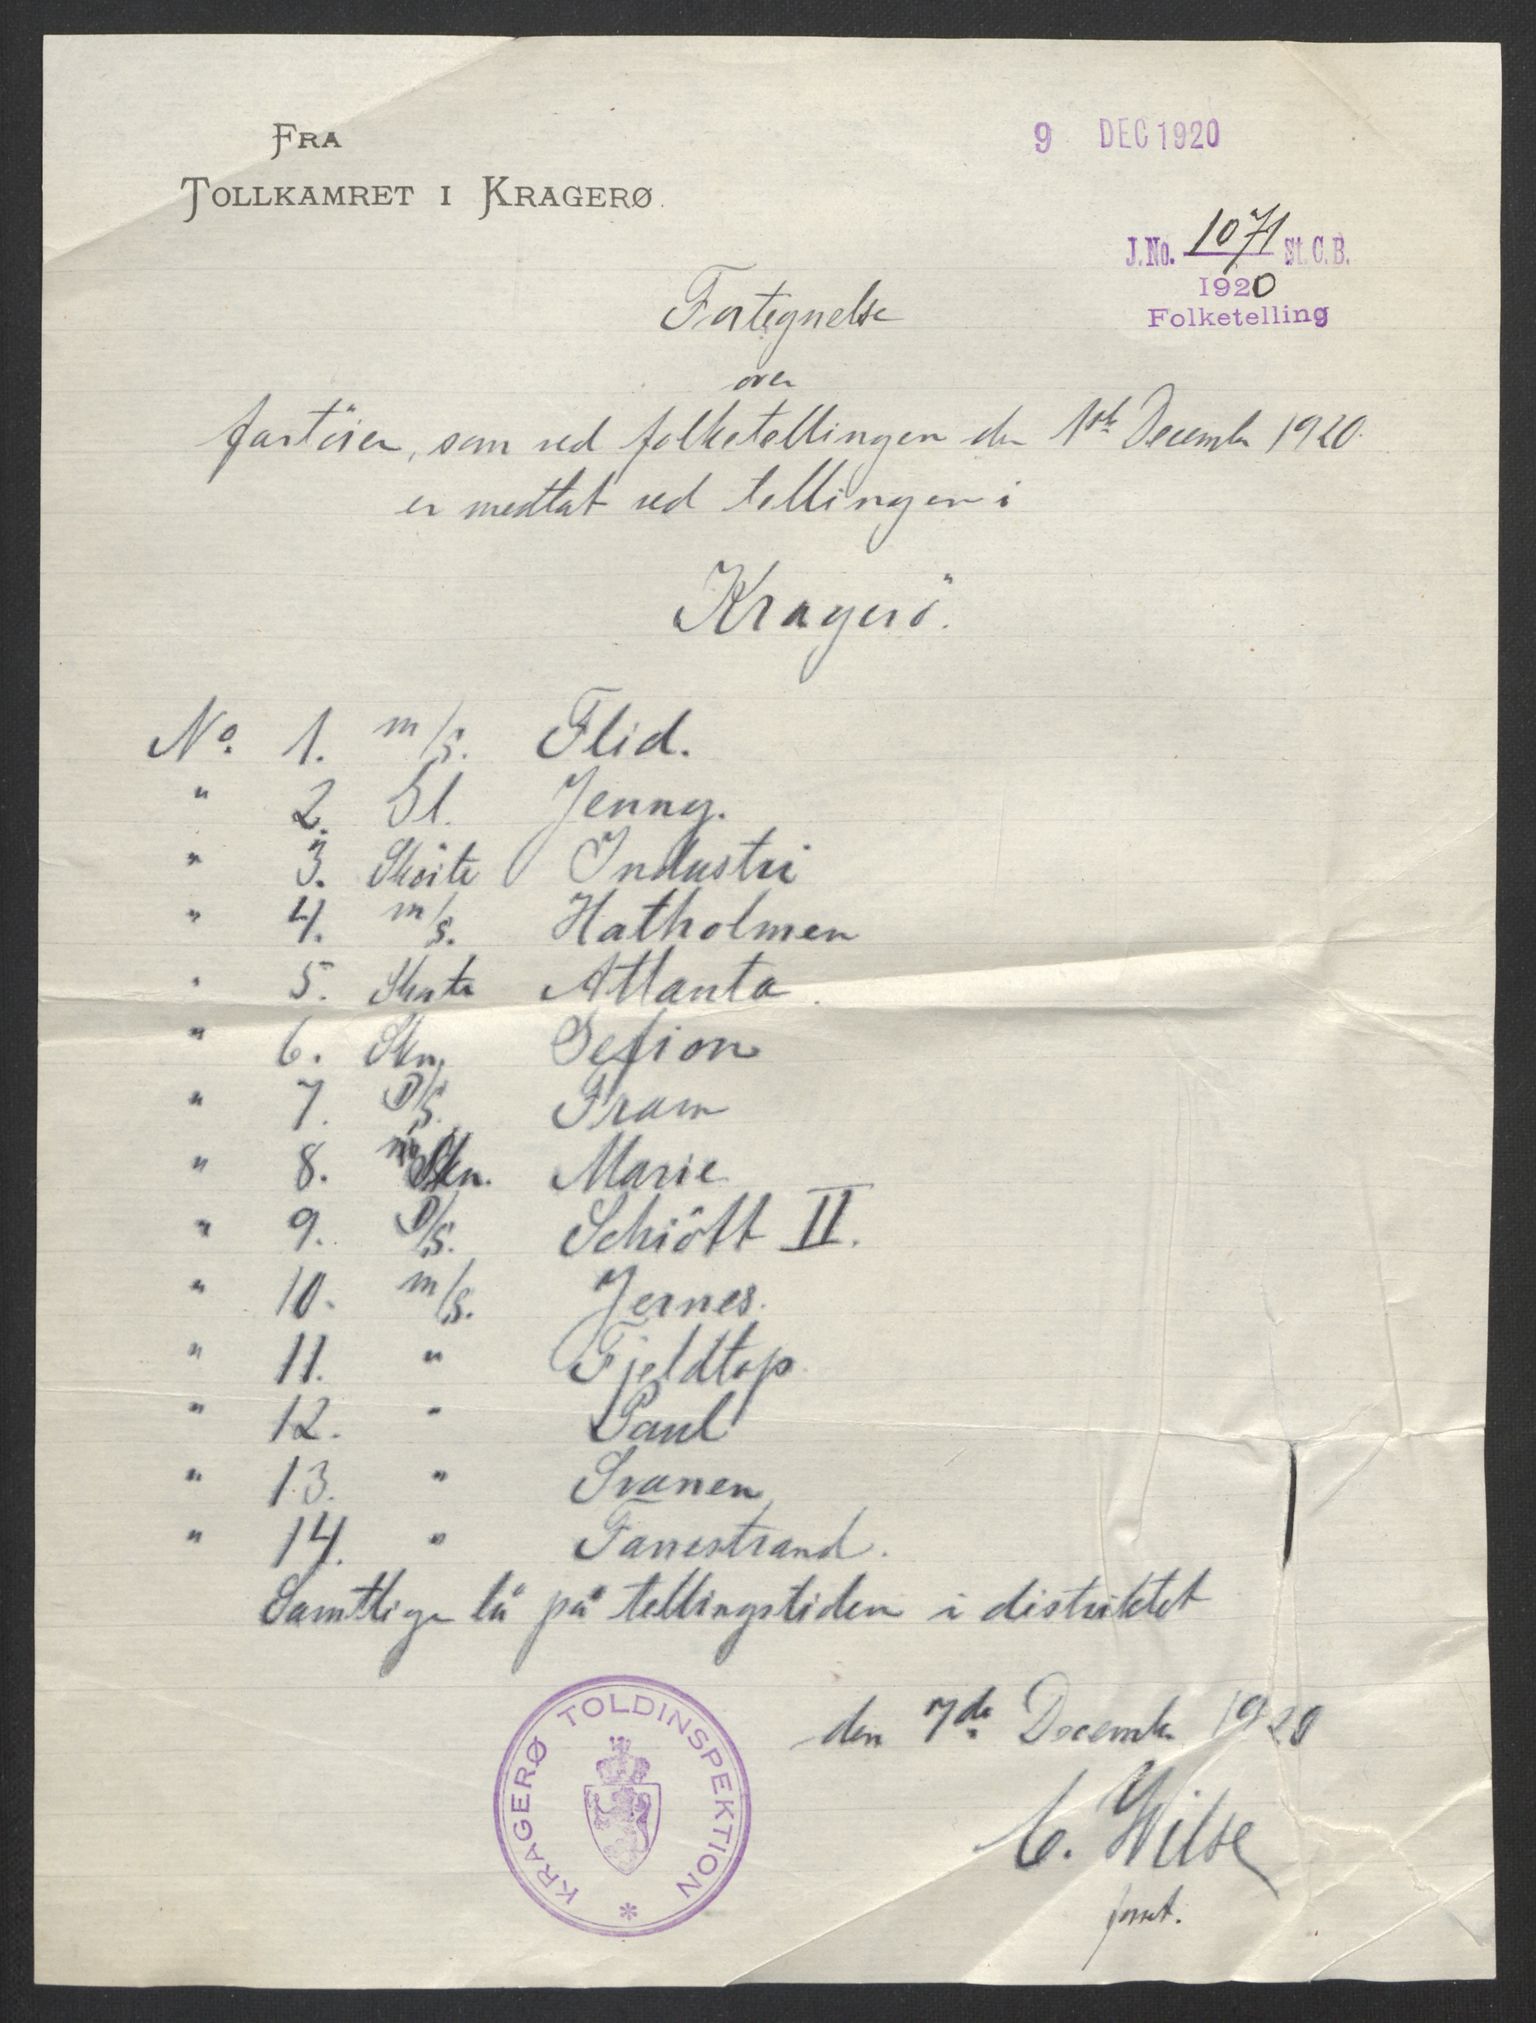 FRA
TOLLKAMRET I KRAGERØ.
9 DEC 1920
J. No. 1071 St. C. B.
1920
Folketelling
Fortegnelse
over
fartöier, som ved folketellingen den 1ste December 1920
er medtat ved tellingen i
Kragerö.
No. 1. m/s. Flid.
" 2. Sl. Jenny.
" 3. Sköite Industri
" 4. m/s. Hatholmen
" 5. Atlanta
" 6. Skn. Gefion
" 7. D/S. Fram
" 8. Skn. Marie
" 9. D/S. Schiött II.
" 10. m/s. Jernes.
" 11. " Fjeldtop
" 12. " Paul
" 13. " Svanen
" 14. " Fanestrand.
Samtlige lå på tellingstiden i distriktet
den 7de December 1920
C. Wilse
KRAGERØ TOLDINSPEKTION *